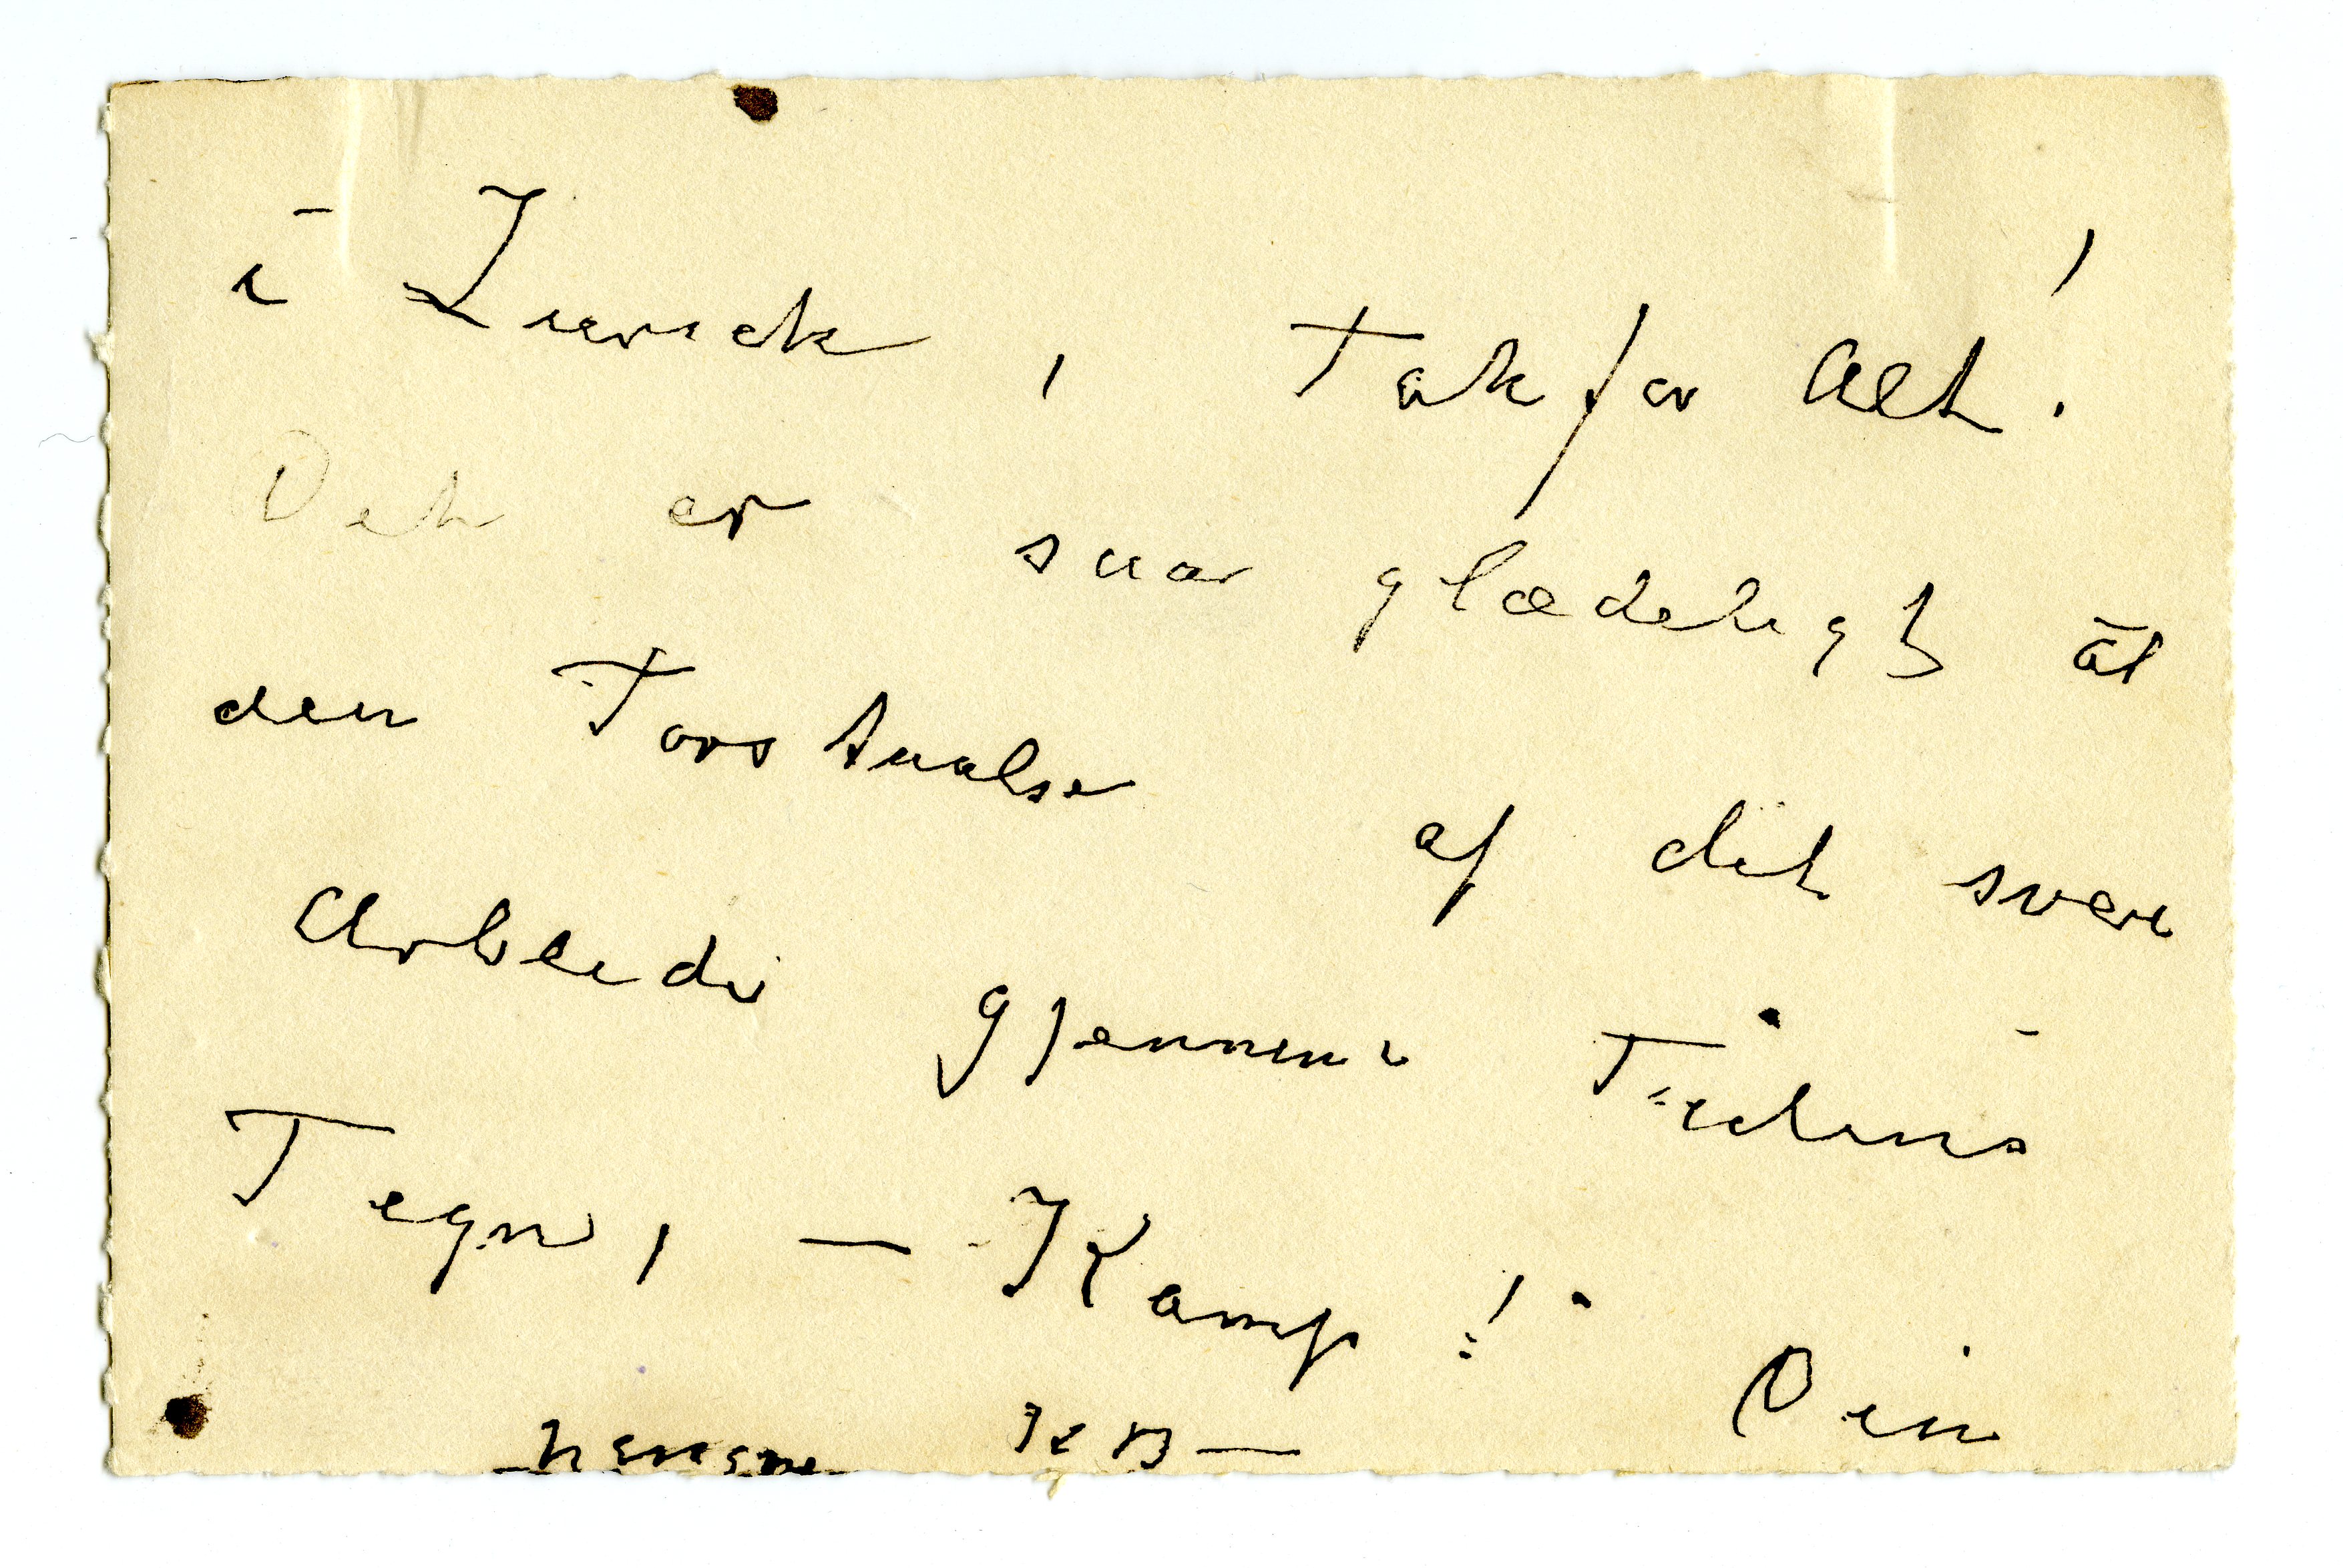 i Zürich, Tak for Alt!
Det er saa glædeligt at
den Forstaaelse af dit svære
Arbeide gjennem Tidens
Tegn, — Kamp! Din
KB—